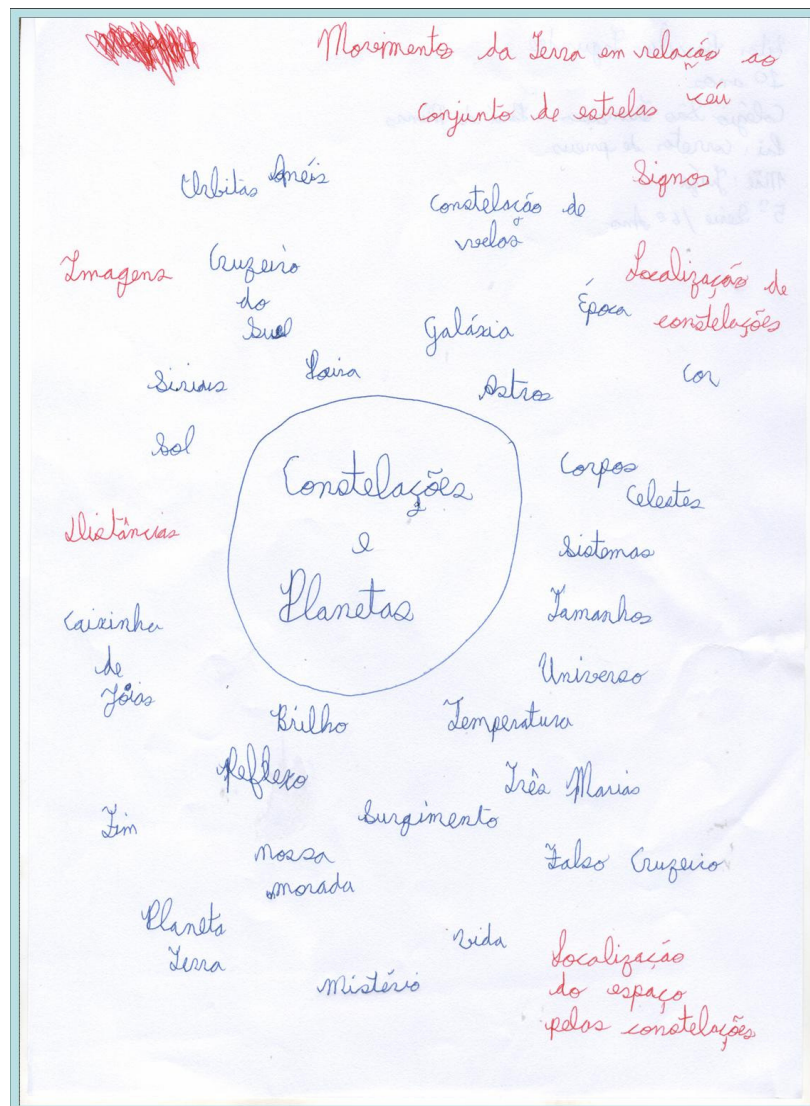 Movimento da Terra em relação ao
céu
conjunto de estrelas
Órbitas Anéis
Signos
Constelação de
velas
Imagens
Cruzeiro
do
Sul
Localização de
constelações
Época
Galáxia
Sirius
Poeira
Astros
Cor
Sol
Constelações
e
Planetas
Corpos
Celestes
Distâncias
Sistemas
Caixinha
de
Jóias
Tamanhos
Universo
Brilho
Temperatura
Reflexo
Três Marias
Fim
Surgimento
nossa
morada
Falso Cruzeiro
Planeta
Terra
vida
mistério
Localização
do espaço
pelas constelações
10 anos